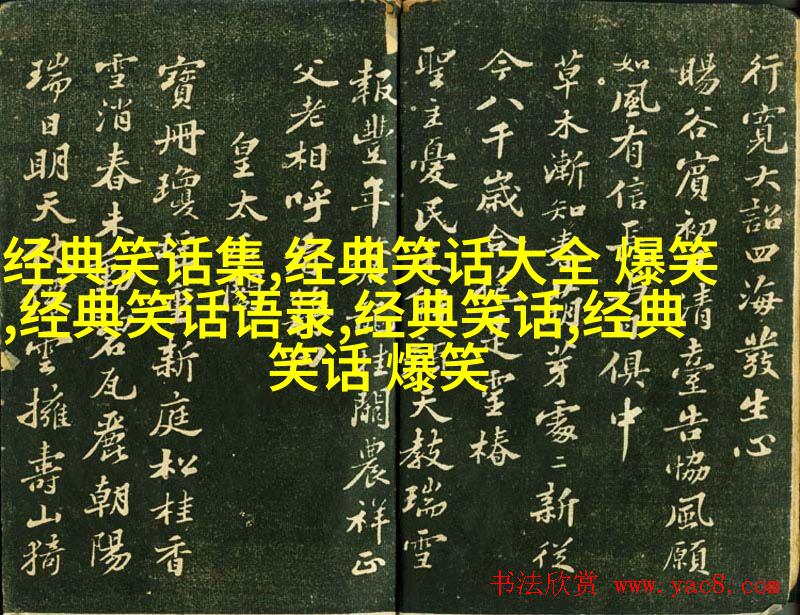 行寬大詔四海發生心
暘谷賓初清臺告協風願
如風有信長俱中
草木漸知萌芽處二新從
今八千歲合是靈椿
聖主憂民天教瑞雪
報豐年關農祥正
父老相呼
皇太
寶冊瓊重新庭松桂香
雪消春未碧瓦麗朝陽
瑞日明天雲擁壽山猗
经典笑话集,经典笑话大全 爆笑
,经典笑话语录,经典笑话,经典
笑话 爆笑
书法欣赏 www.yac8.com